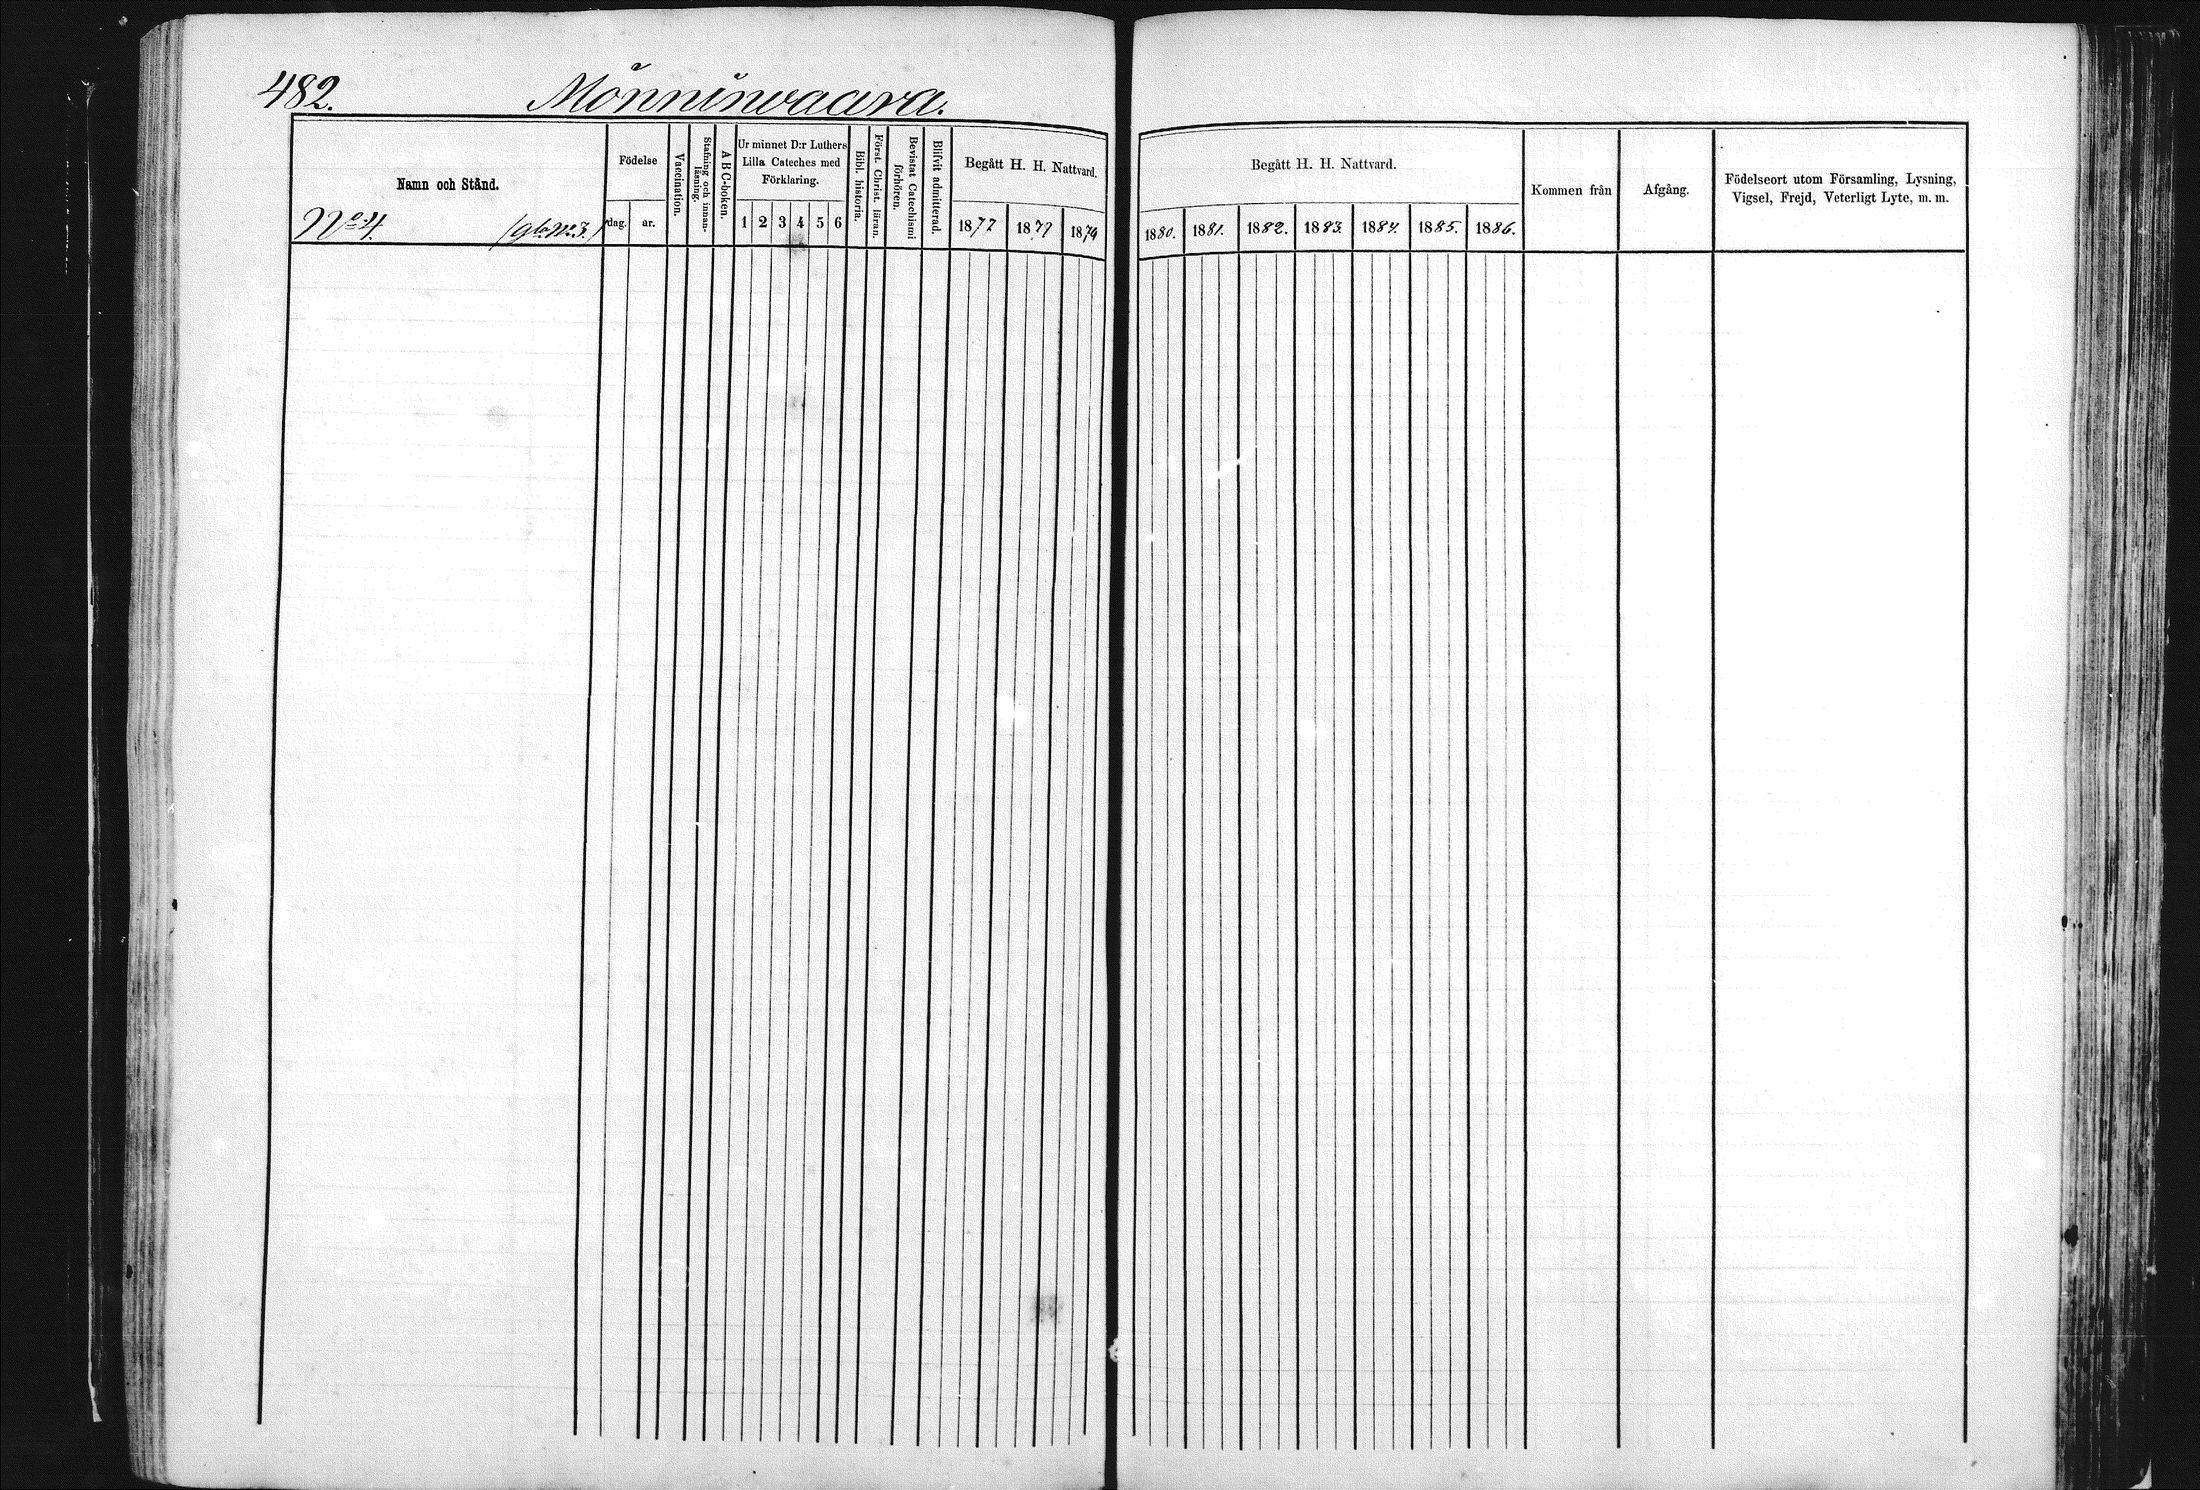 482. Mönninvaara.
Namn och Stånd.
No 4. (gb. No 3.)
Födelse
dag. år.
Vaccination.
Stafning och innanläsning.
A B C-boken.
Ur minnet D:r Luthers
Lilla Cateches med
Förklaring.
1 2 3 4 5 6
Bibl. historia.
Först. Christ. läran.
Bevistat Catechismi förhören.
Blifvit admitterad.
Begått H. H. Nattvard.
1877 1879
Begått H. H. Nattvard.
1880. 1881. 1882. 1883. 1884. 1885. 1886.
Kommen från
Afgång.
Födelseort utom Församling, Lysning,
Vigsel, Frejd, Veterligt Lyte, m. m.